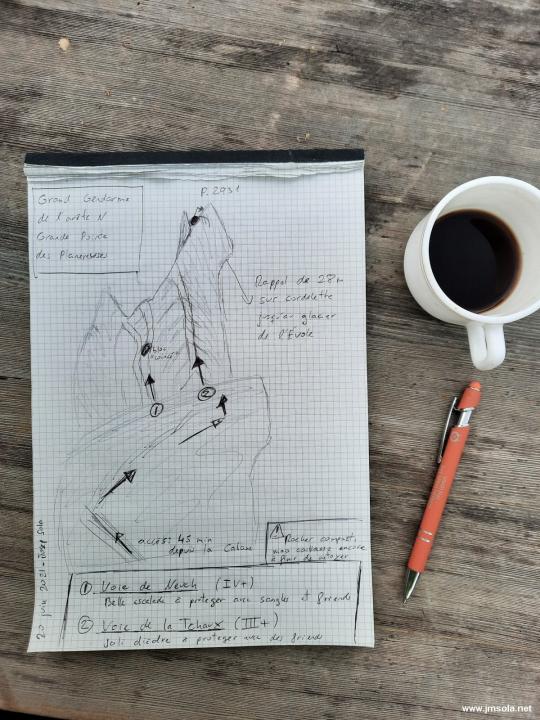 Grand Gendarme
de l'arête N
Grande Pointe
des Planereuses
P. 2931
Rappel de 28m
sur cordelette
jusqu'au glacier
de l'Evole
bloc
coincé
1
2
accès: 45 min
depuis la Cabane
Rocher compact,
mais certaines encore
à finir de nettoyer
① Voie de Neuch (IV+)
Belle escalade à protéger avec sangles et friends
② Voie de la Tchaux (III+)
Joli dièdre à protéger avec des friends
juin 2021 - Josep Sola
www.jmsola.net